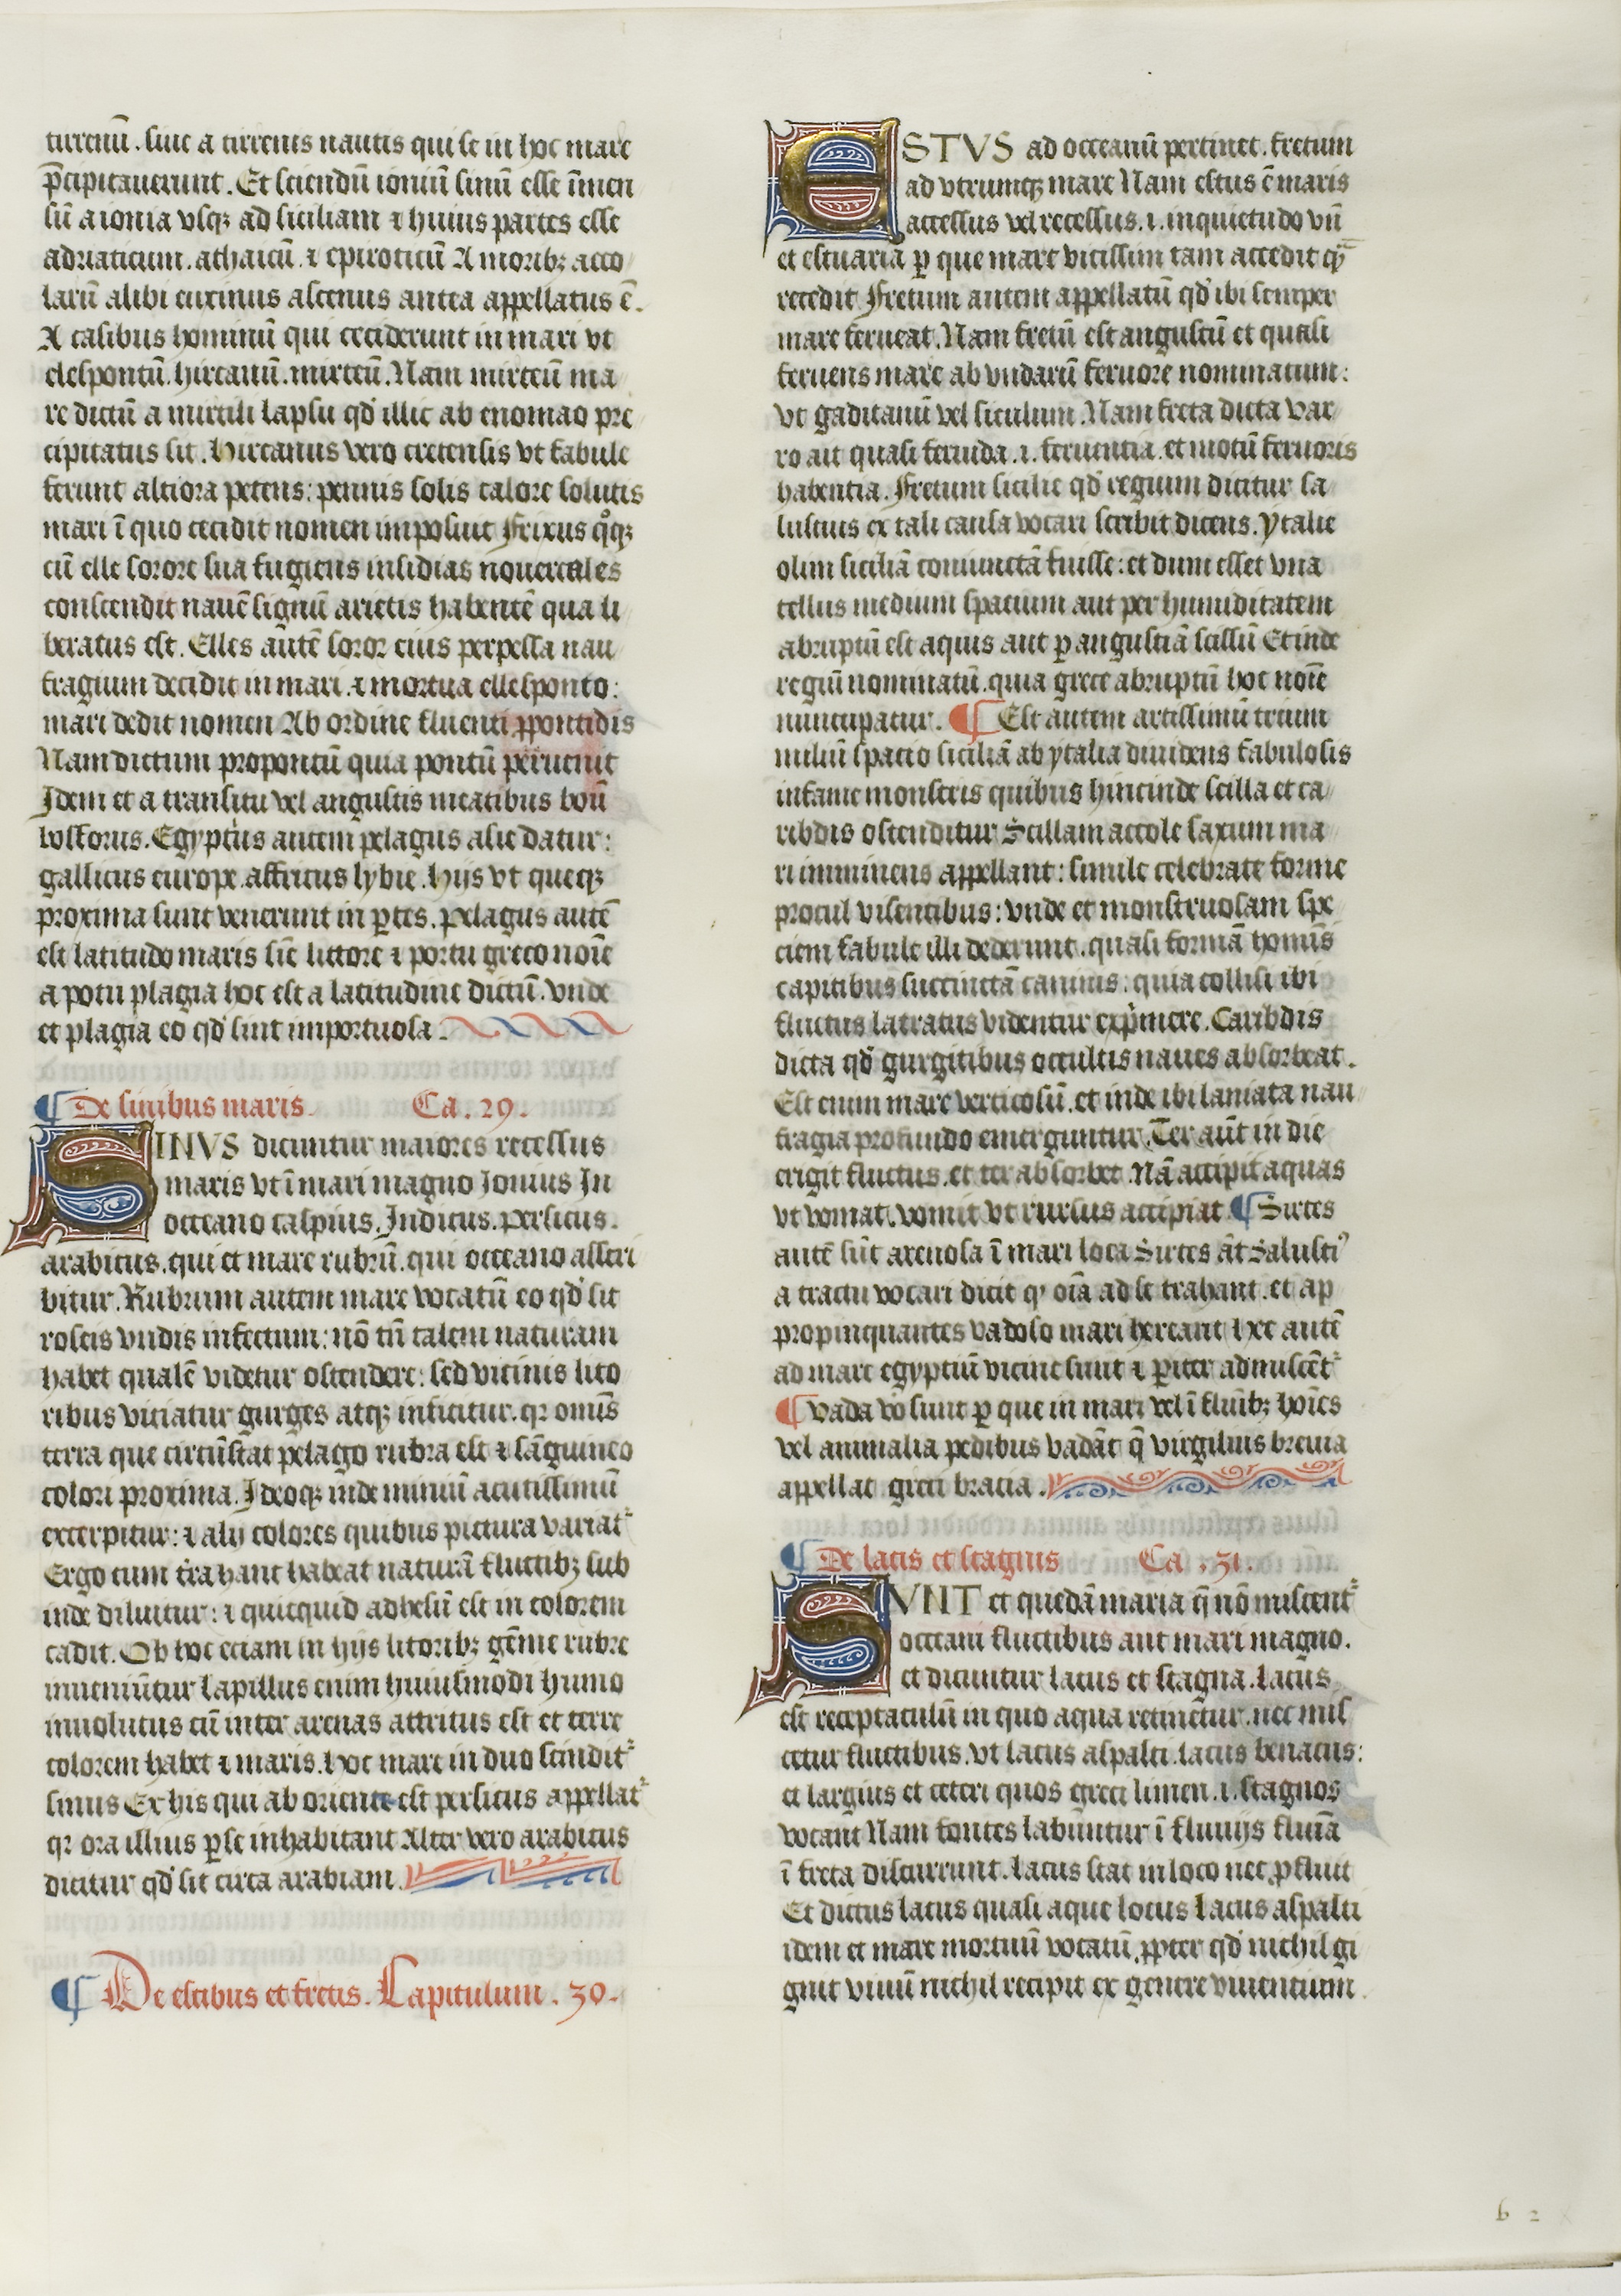 tirrenū. siue a tirrenis nautis qui se in hoc mare
p̄cipitauerunt. Et sciendū ioniū sinū esse īmen
sū a ionia vsqꝫ ad siciliam ⁊ huius partes esse
adriaticum. athaicū. ⁊ epiroticū A moribꝫ acco
larū alibi euxinus ascenus antea appellatus ē.
A casibus hominū qui ceciderunt in mari vt
elespontū. hircanū. mirteū. Nam mirteū ma
re dictū a mirtili lapsu qd' illic ab enomao pre
cipitatus sit. hircanus vero cretensis vt fabule
ferunt altiora petens: pennis solis calore solutis
mari ī quo cecidit nomen imposuit Frixus qͦqꝫ
cū elle sorore sua fugiens insidias nouercales
conscendit nauē signū arietis habentē qua li
beratus est. Elles autē soror eius perpessa nau
fragium decidit in mari. ⁊ mortua ellesponto:
mari dedit nomen Ab ordine fluenti ꝓpontidis
Nam dictum propontū quia pontū peruenit
Idem et a transitu vel angustis meatibus boū
bosforus. Egyptius autem pelagus asie datur:
gallicus europe. affricus lybie. hijs vt queqꝫ
proxima sunt venerunt in ꝑtes. pelagus autē
est latitudo maris sīe littore ⁊ portu greco noīe
a potu plagia hoc est a latitudine dictū. vnde
et plagia eo qd' sint importuosa.
¶ De sinibus maris. Ca. 29.
SINVS dicuntur maiores recessus
maris vt ī mari magno Ionius In
occeano caspius. Indicus. persicus.
arabicus. qui et mare rubrū. qui occeano asscri
bitur. Rubrum autem mare vocatū eo qd' sit
roseis vndis infectum: nō tn̄ talem naturam
habet qualē videtur ostendere: sed vicinis lito
ribus viciatur gurges atqꝫ inficitur. qꝛ omīs
terra que circūstat pelago rubra est ⁊ sāguineo
colori proxima. Ideoqꝫ inde miniū acutissimū
excerpitur: ⁊ alij colores quibus pictura variat᷑
Ergo cum tͥra hanc habeat naturā fluctibꝫ sub
inde diluitur: ⁊ quicquid adhesū est in colorem
cadit. Ob hoc eciam in hijs litoribꝫ gēme rubre
inueniūtur lapillus enim huiusmodi humo
inuolutus cū inter arenas attritus est et terre
colorem habet ⁊ maris. hoc mare in duo scindit᷑
sinus Ex his qui ab oriente est persicus appellat᷑
qꝛ ora illius ꝑse inhabitant Alter vero arabicus
dicitur qd' sit circa arabiam.
¶ De estibus et fretis. Capitulum. 30.
ESTVS ad occeanū pertinet. fretum
ad vtrumqꝫ mare Nam estus ē maris
accessus vel recessus. i. inquietudo vn̄
et estuaria ꝑ que mare vicissim tam accedit qͣ̄
recedit Fretum autem appellatū qd' ibi semper
mare ferueat. Nam fretū est angustū et quasi
feruens mare ab vndarū feruore nominatum:
vt gaditanū vel siculum. Nam freta dicta var
ro ait quasi feruida. i. feruentia. et motū feruoris
habentia. Fretum sicilie qd' regium dicitur sa
lustius ex tali causa vocari scribit dicens. ytalie
olim siciliā coniunctā fuisse: et dum esset vna
tellus medium spatium aut per humiditatem
abruptū est aquis aut ꝑ angustiā scissū Et inde
regiū nominatū. quia grece abruptū hoc noīe
nuncupatur. ¶ Est autem artissimū trium
miliū spatio siciliā ab ytalia diuidens fabulosis
infame monstris quibus hincinde scilla et ca
ribdis ostenditur Scillam accole saxum ma
ri imminens appellant: simile celebrate forme
procul visentibus: vnde et monstruosam spe
ciem fabule illi dederunt. quasi formā homīs
capitibus succinctā caninis: quia collisi ibi
fluctus latratus videntur exp̄mere. Caribdis
dicta qd' gurgitibus occultis naues absorbeat.
Est enim mare verticosū. et inde ibi laniata nau
fragia profundo emerguntur. Ter aūt in die
erigit fluctus. et ter absorbet. Nā accipit aquas
vt vomat. vomit vt rursus accipiat ¶ Sirtes
autē sūt arenosa ī mari loca Sirtes āt Salustiꝰ
a tractu vocari dicit qꝫ oīa ad se trahant. et ap
propinquantes vadoso mari hereant hec autē
ad mare egyptiū vicine sunt ⁊ ꝑiter admiscēt᷑
¶ Vada vo sunt ꝑ que in mari vel ī flūibꝫ hoīes
vel animalia pedibus vadāt q̄ virgilius breuia
appellat greci bracia.
¶ De lacis et stagnis Ca. 31.
SVNT et quedā maria q̄ nō miscent᷑
occeani fluctibus aut mari magno.
et dicuntur lacus et stagna. lacus
est receptaculū in quo aqua retinetur. nec mis
cetur fluctibus. vt lacus aspalti. lacus benacus:
et largius et ceteri quos greci limen. i. stagnos
vocant Nam fontes labuntur ī fluuijs fluīa
ī freta discurrunt. lacus stat in loco nec ꝓfluit
Et dictus lacus quasi aque locus Lacus aspalti
idem et mare mortuū vocatū. ꝓpter qd' nichil gi
gnit viuū nichil recipit ex genere viuentium.
b 2